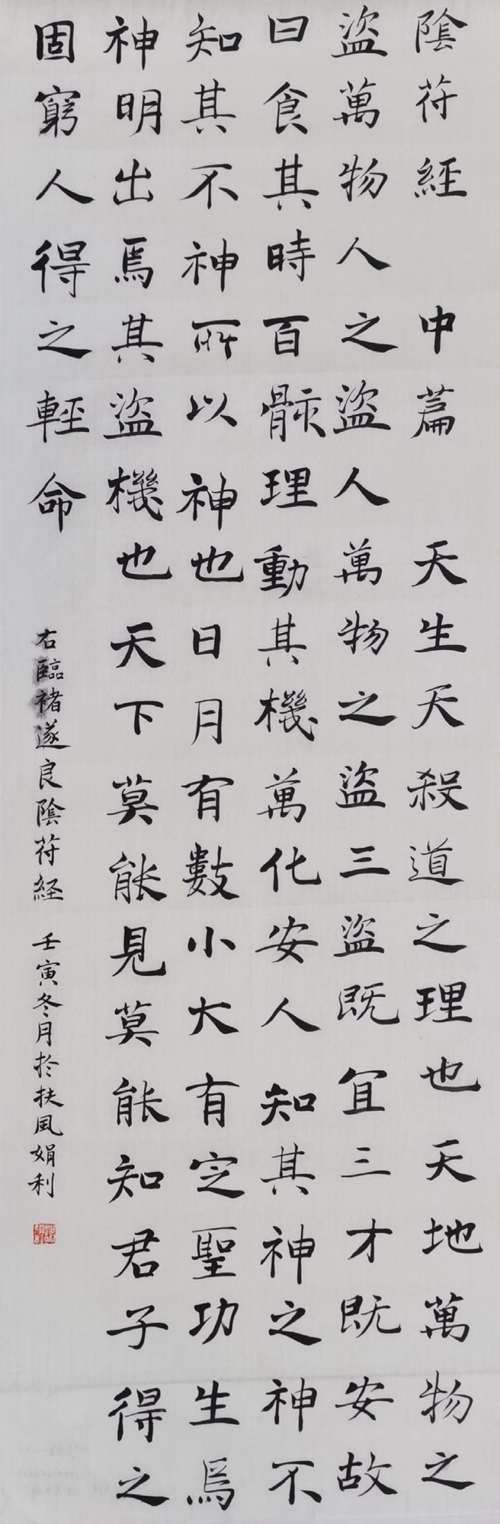 陰符經 中篇 天生天殺道之理也天地萬物之
盜萬物人之盜人萬物之盜三盜既宜三才既安故
曰食其時百骸理動其機萬化安人知其神之神不
知其不神所以神也日月有數小大有定聖功生焉
神明出焉其盜機也天下莫能見莫能知君子得之
固窮人得之輕命
右臨褚遂良陰符経 壬寅冬月於扶風娟利